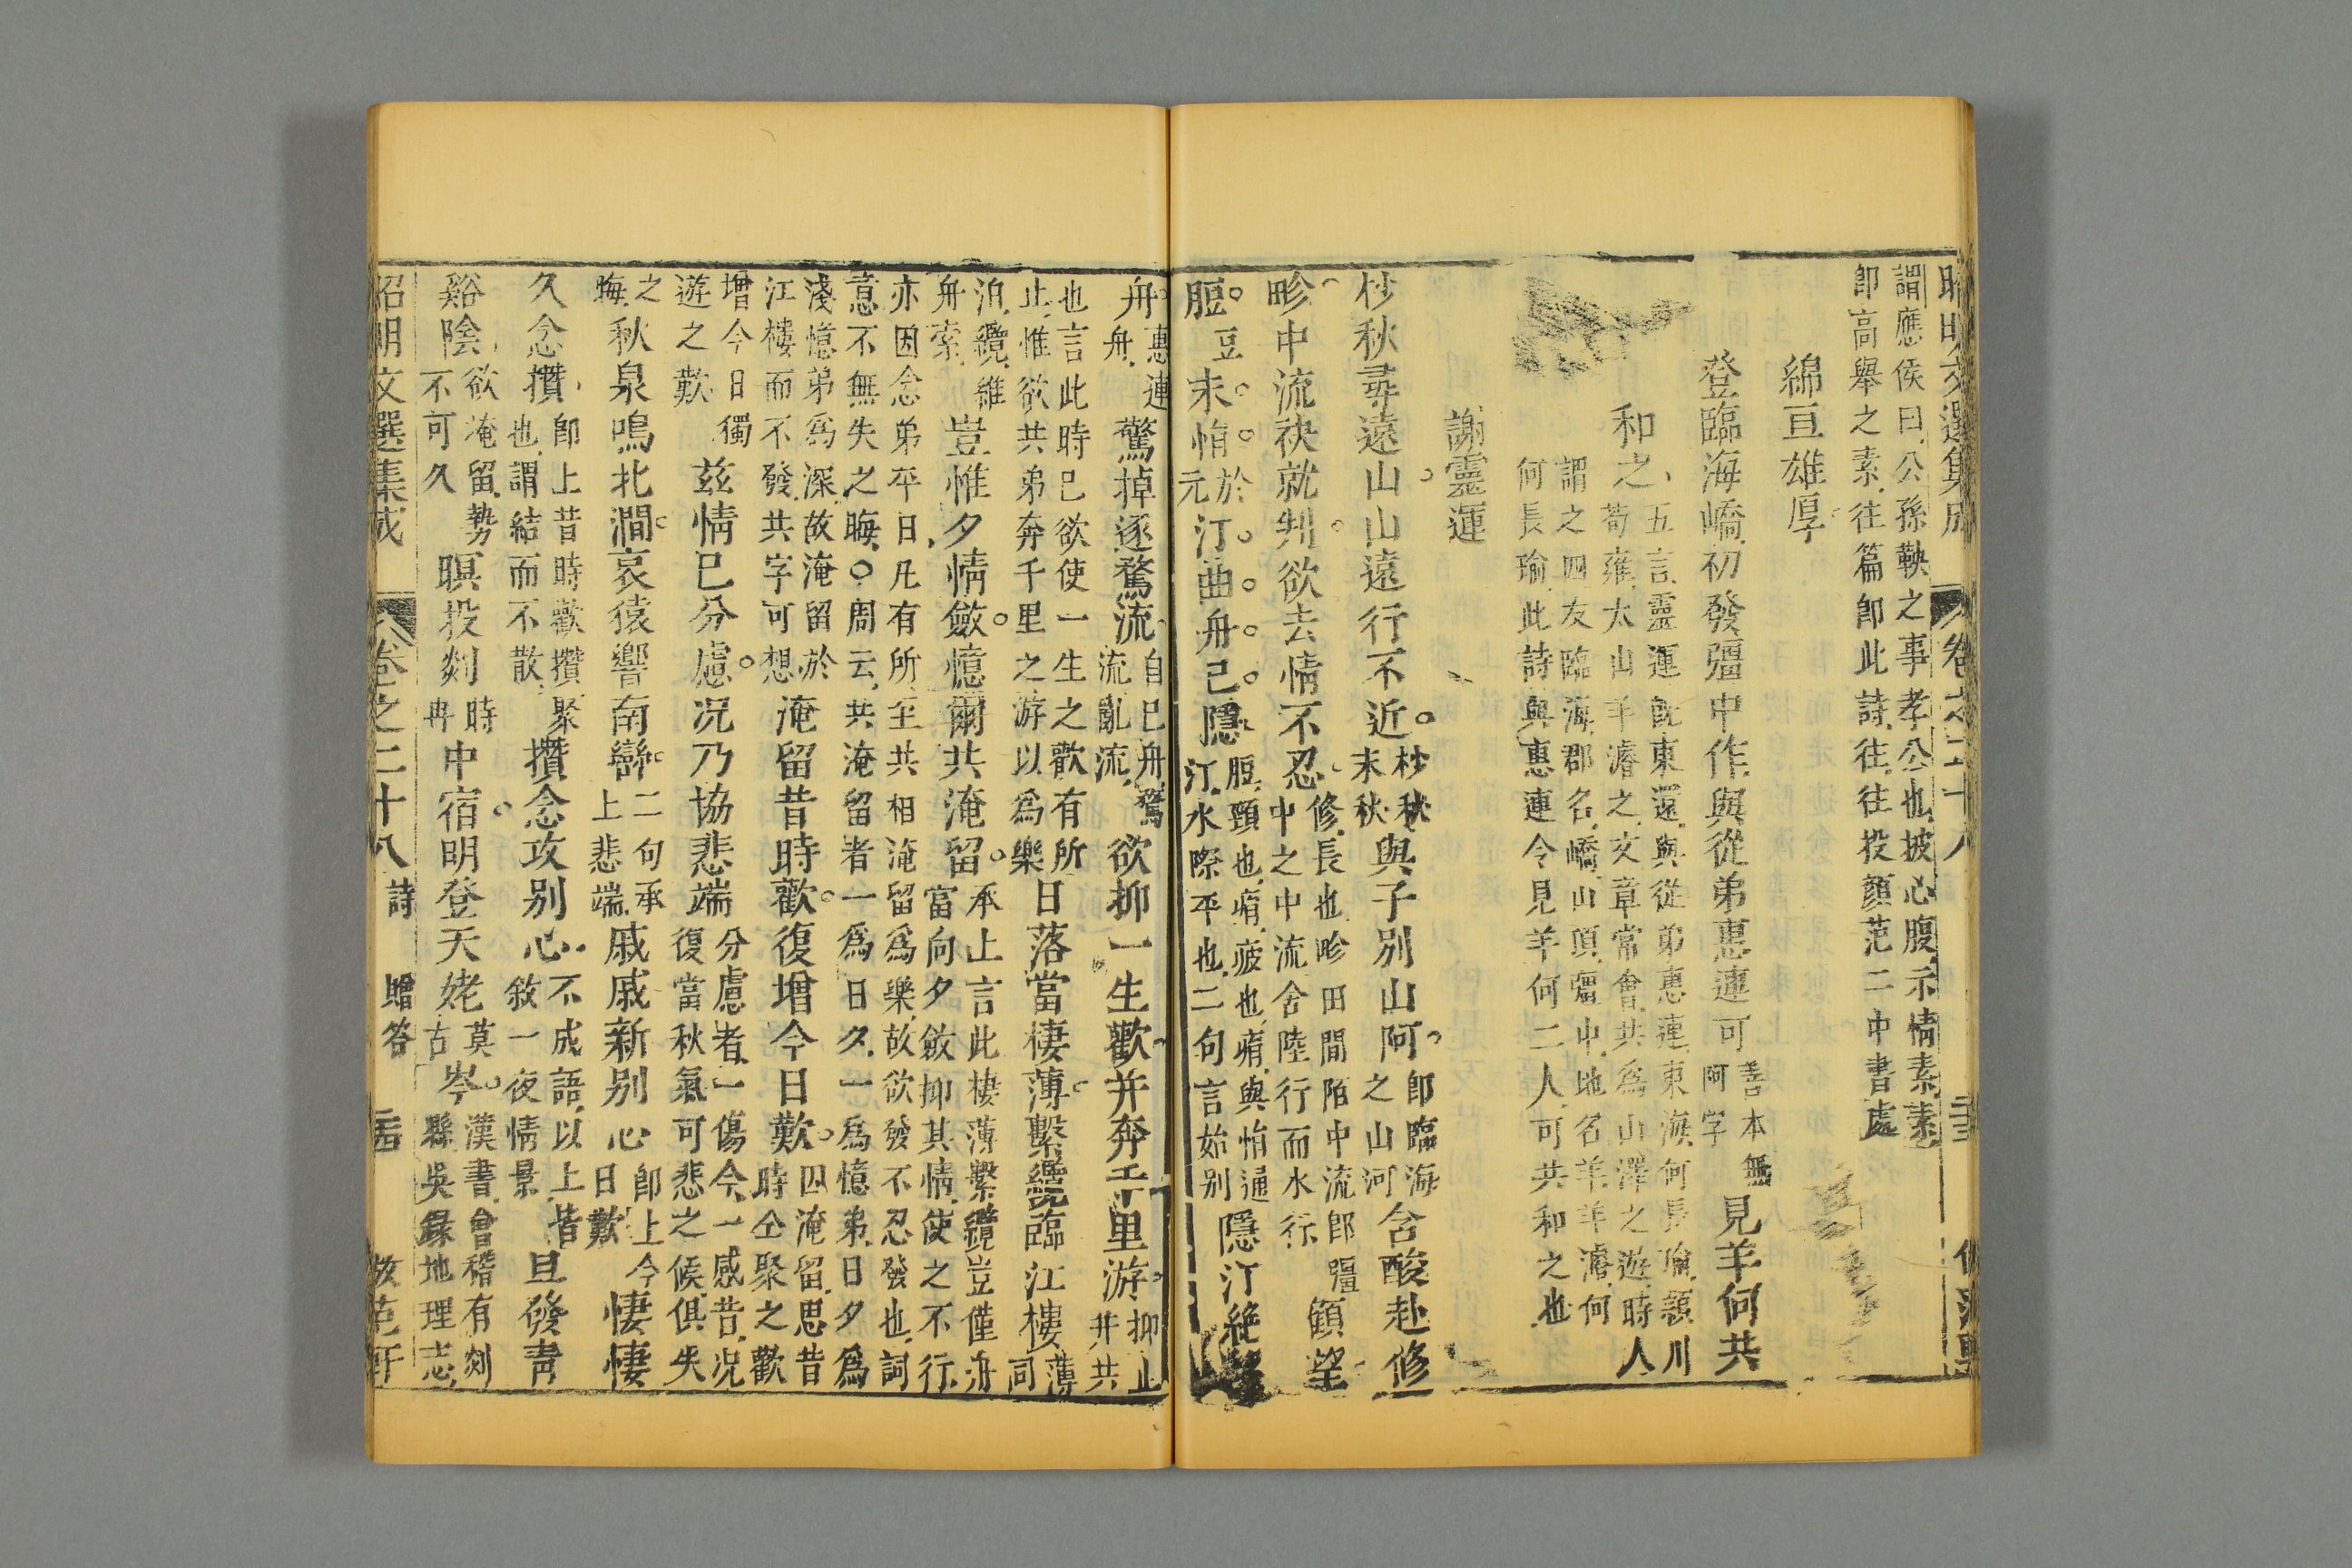 昭明文選集成 卷之二十八
謂應侯曰公孫鞅之事孝公也披心腹示情素素
卽高舉之素往篇卽此詩往往投顏范二中書處
綿亘雄厚
登臨海嶠初發彊中作與從弟惠連可善本無阿字見羊何共
和之五言靈運旣東還與從弟惠連東海何長瑜潁川荀雍太山羊濬之文章常會共爲山澤之遊時人
謂之四友臨海郡名嶠山頂彊中地名羊羊濬何
何長瑜此詩與惠連令見羊何二人可共和之也
謝靈運
杪秋尋遠山山遠行不近杪秋末秋與子別山阿卽臨海之山河含酸赴修
畛中流袂就判欲去情不忍修長也畛田間陌中流郎彊中之中流舍陸行而水行顧望
脰豆未悁於元汀曲舟已隱脰頸也痟疲也痟與悁通汀水際平也二句言始別隱汀絶望
舟惠連舟驚棹逐驚流自巳舟驚流亂流欲抑一生歡并奔千里游抑止并共
也言此時巳欲使一生之歡有所止惟欲共弟奔千里之游以爲樂日落當棲薄繫纜臨江樓薄同
泊纜維舟索豈惟夕情斂憶爾共淹留承上言此棲薄繫纜豈僅舟當向夕斂抑其情使之不行
亦因念弟平日凡有所至共相淹留爲樂故欲發不忍發也詞
意不無失之晦○周云共淹留者一爲日夕一爲憶弟日夕爲
淺憶弟爲深故淹留於江樓而不發共字可想淹留昔時歡復增今日歎四淹留思昔時仝聚之歡
增今日獨遊之歎茲情已分慮况乃協悲端分慮者一傷今一感昔况復當秋氣可悲之候俱失
之晦秋泉鳴北澗哀猿響南巒二句承上悲端戚戚新別心卽上今日歎悽悽
久念攢卽上昔時歡攢聚也謂結而不散攢念攻別心不成語以上皆敘一夜情景旦發青
谿陰欲淹留勢不可久暝投剡時冉中宿明登天姥莫古岑漢書會稽有剡縣吳錄地理志
昭明文選集成 卷之二十八 詩 贈答